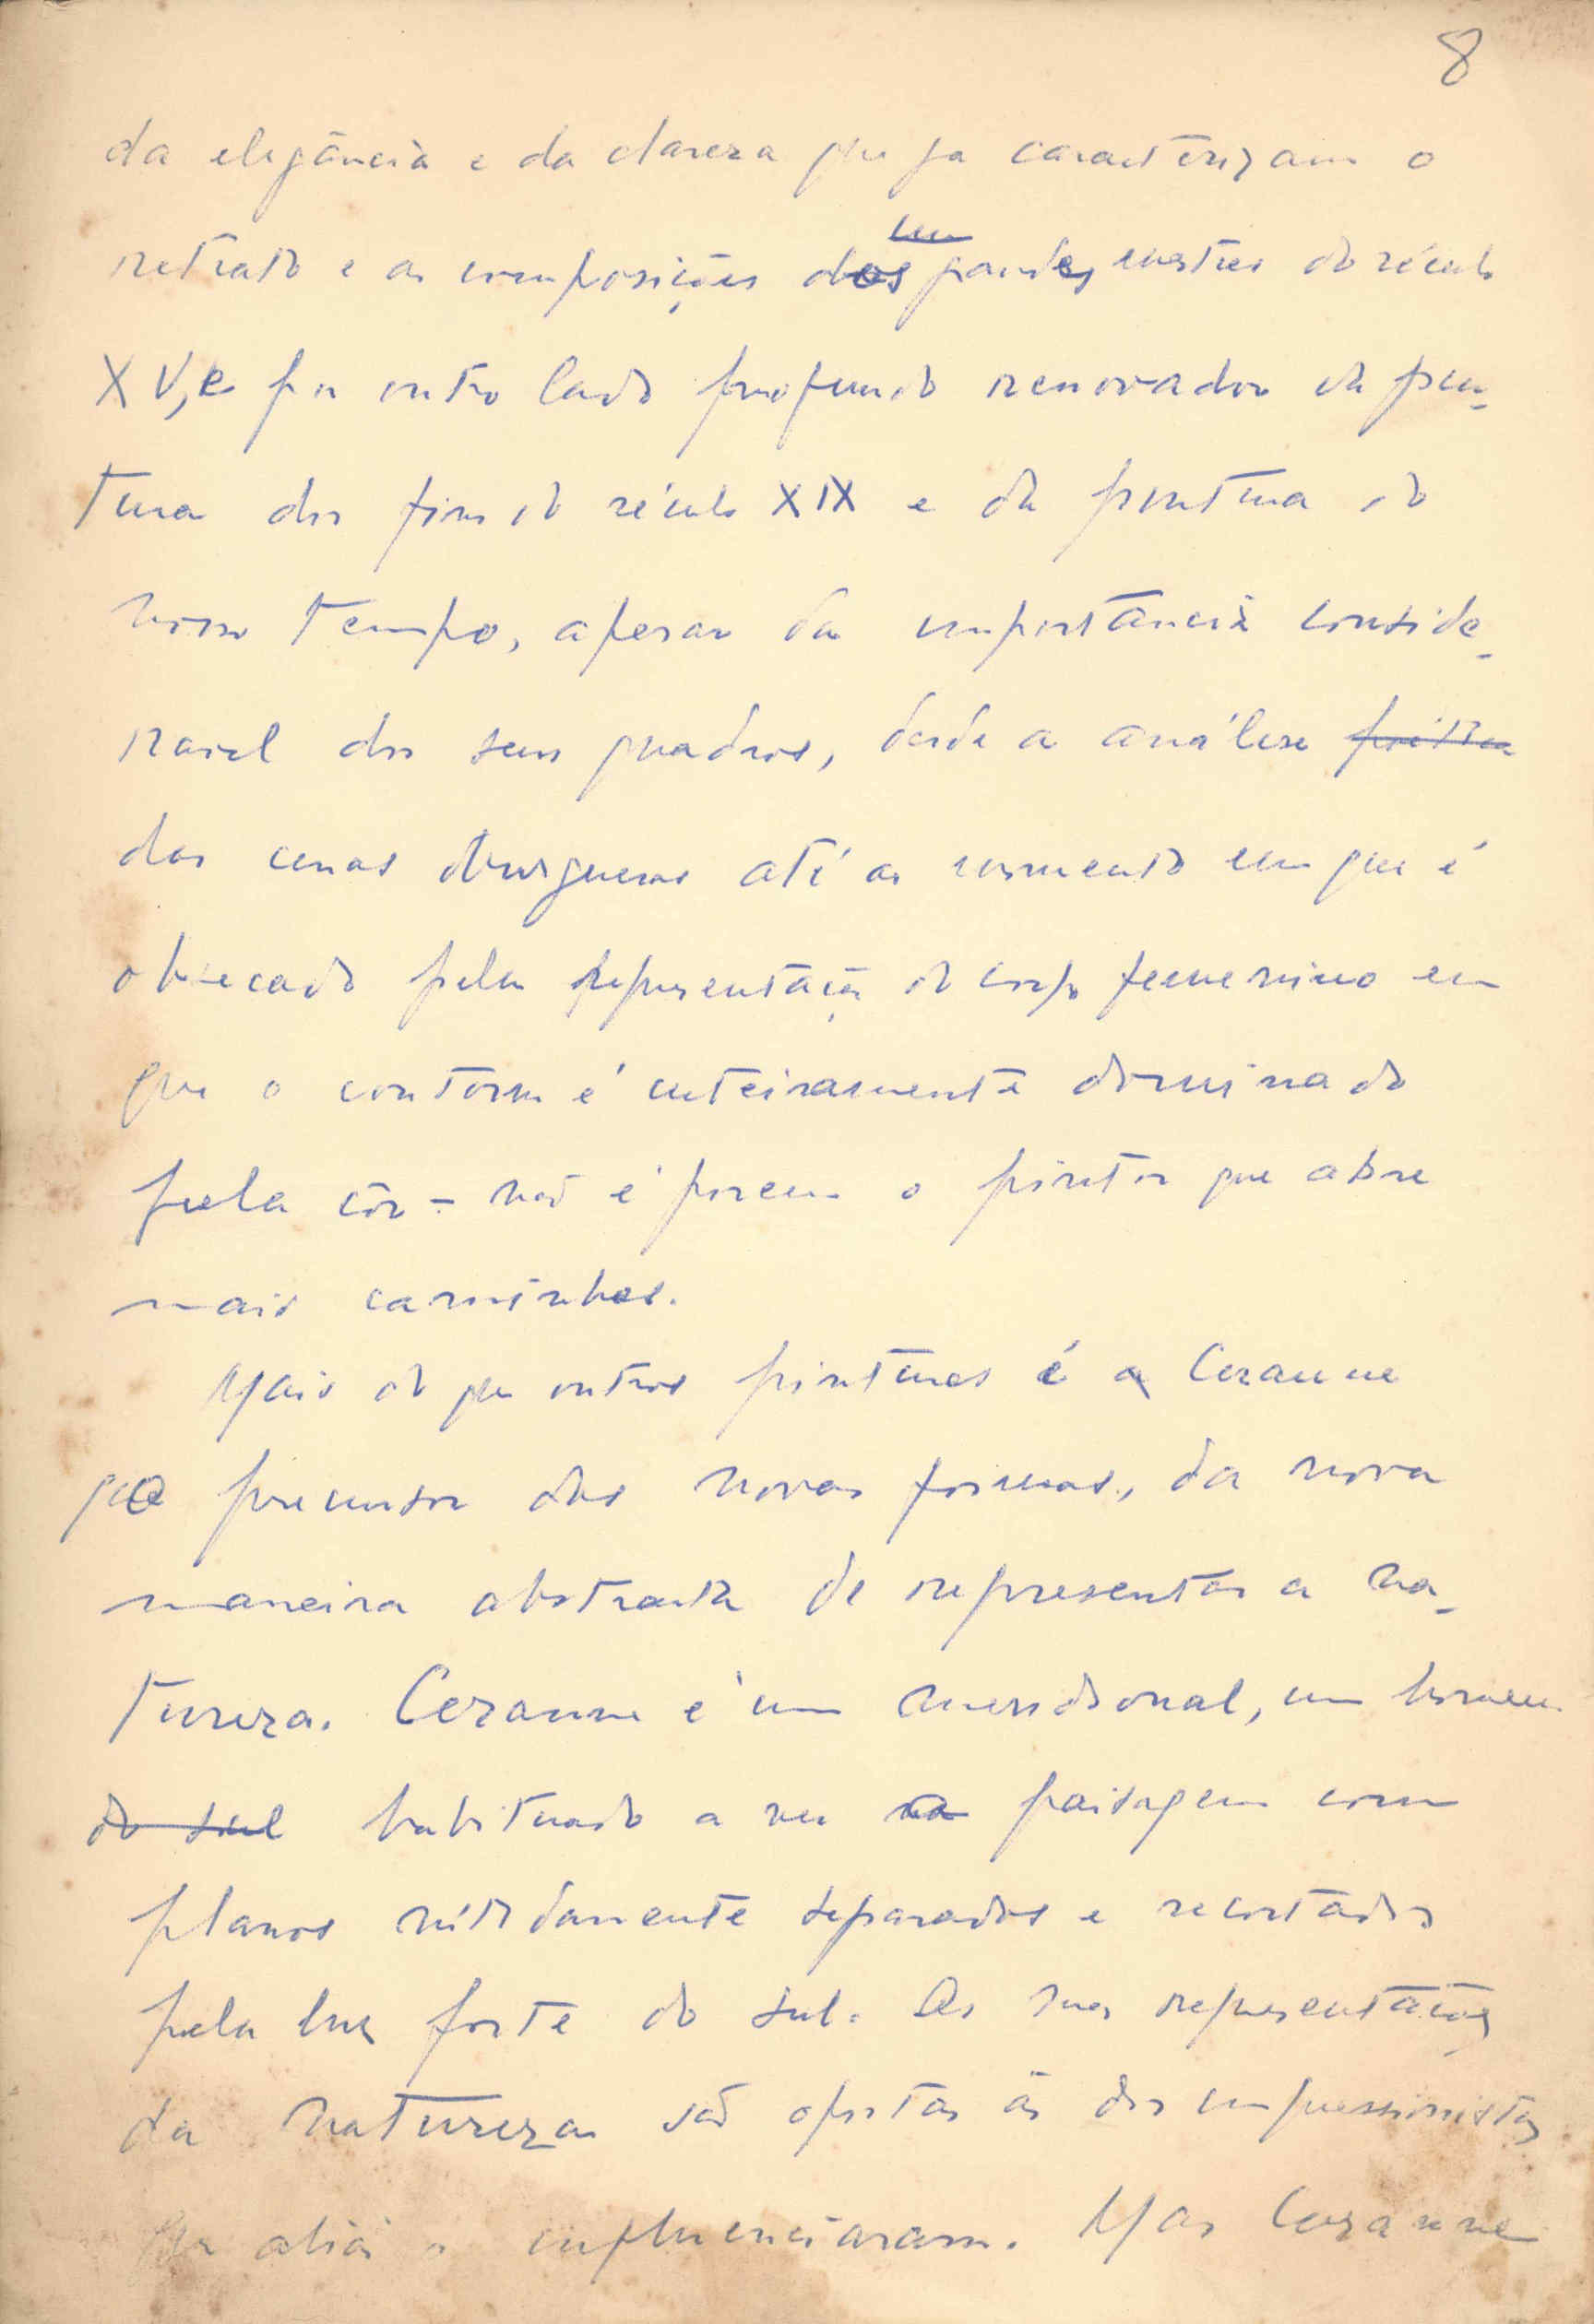 8
da elegância e da clareza que ja caracterizam o
retrato e as composições dos grandes mestres do século
XV, e por outro lado profundo renovador da pin-
tura dos fins do século XIX e da pintura do
nosso tempo, apesar da importância conside-
ravel dos seus quadros, desde a análise
das cenas burguesas até ao momento em que é
obsecado pela representação do corpo femenino em
que o contorno é inteiramente dominado
pela côr - não é porem o pintor que abre
mais caminhos.
Mais do que outros pintores é a Cezanne
que precursor das novas formas, da nova
maneira abstracta de representar a na-
tureza. Cezanne é um meridional, um homem
do sul habituado a ver na paisagem com
planos nitidamente separados e recortados
pela luz forte do sul. As suas representações
da natureza são opostas ás dos impressionistas
que aliás o influenciaram. Mas Cezanne